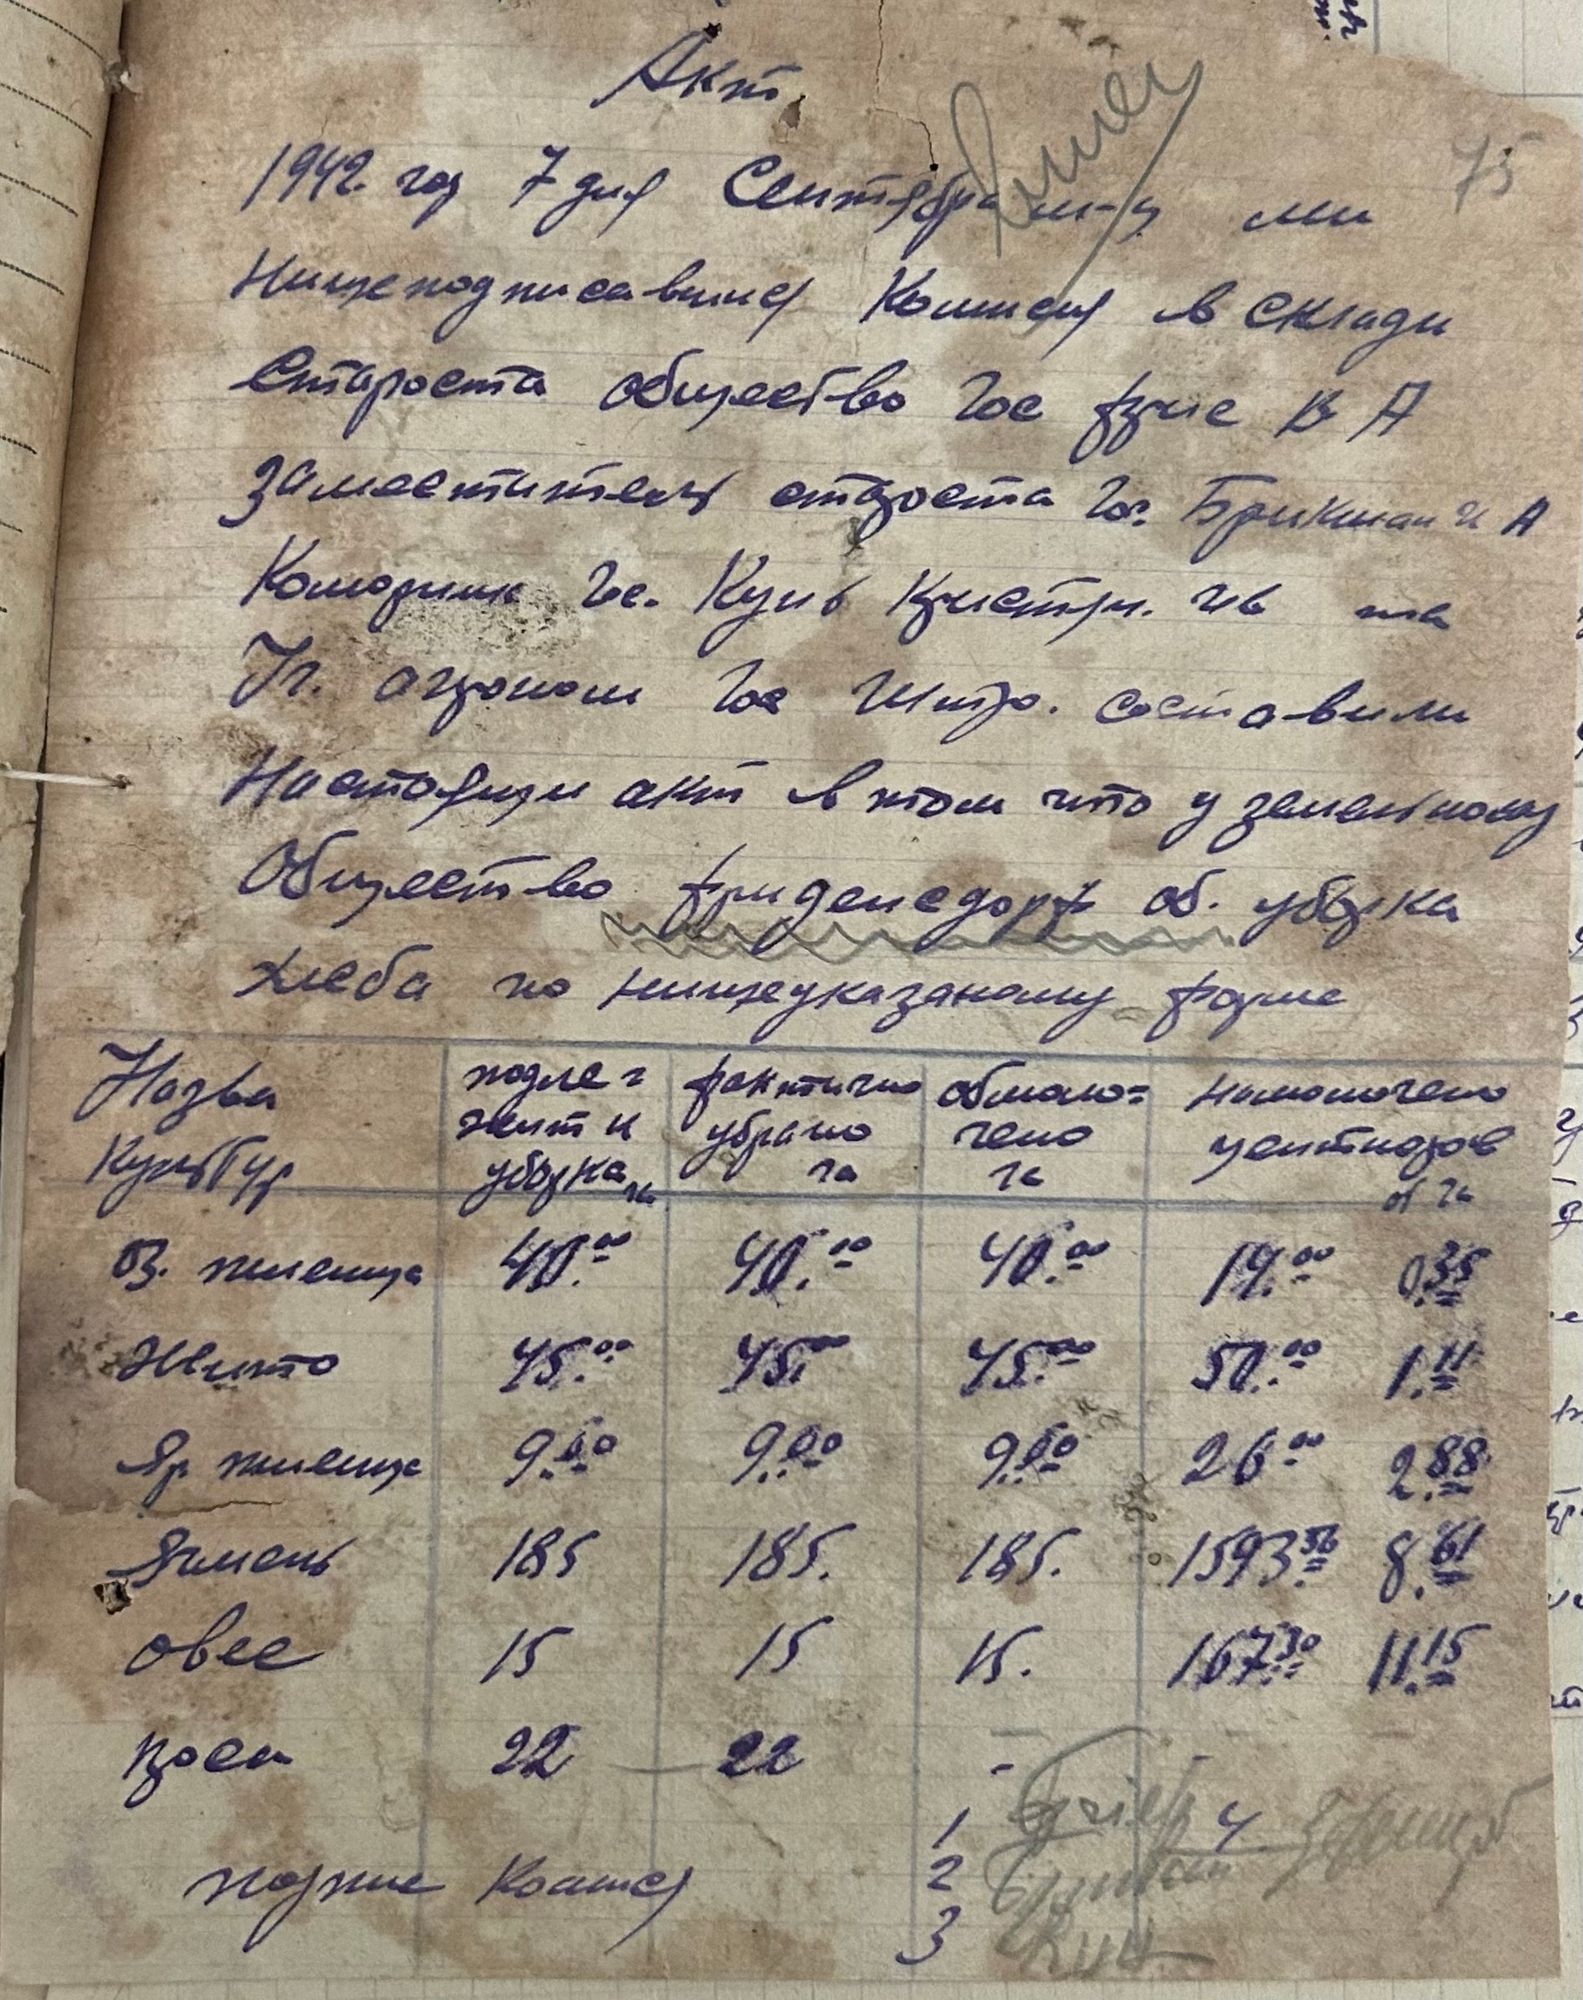 Акт
75
1942. год 7 дня Сентября м-ц ми
Нищеподписавшиеся Комисия в склади
Староста общество Гос фрис К А
Заместитель староста Гос. Брикман И А
Коморник Гос. Кунь та
Гос составили
Настоящи акт в том что у земельному
Общество фриденсдорф об. уборка
хлеба по нищеуказаному форме
Назва подле= фактично обмоло= Намолочено
Культур жит к убрано чено центнеров
уборка га га га об га
Оз. пшеница 40.00 40.00 40.00 14.00 0.35
Жито 45.00 45.00 45.00 50.00 1.11
Яр пшеница 9.00 9.00 9.00 26.00 2.88
Ячмень 185 185. 185. 1593.56 8.61
овес 15 15 15. 167.30 11.15
просо 22 — 22 - -
подпис Комисия 1
4
2
3